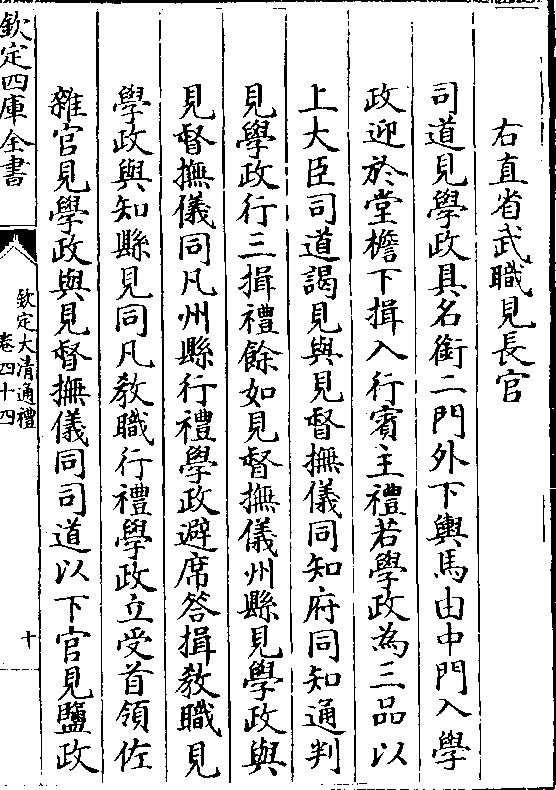 右直省武職見長官
司道見學政具名銜二門外下輿馬由中門入學
政迎於堂檐下揖入行賓主禮若學政為三品以
上大臣司道謁見與見督撫儀同知府同知通判
見學政行三揖禮餘如見督撫儀州縣見學政與
見督撫儀同凡州縣行禮學政避席答揖敎職見
學政與知縣見同凡敎職行禮學政立受首領佐
雜官見學政與見督撫儀同司道以下官見鹽政
欽定四庫全書
欽定大清通禮
卷四十四
十